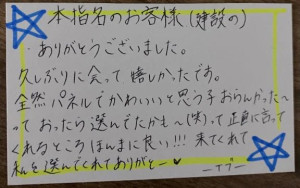 本指名のお客様(建設の)
・ありがとうございました。
久しぶりに会って嬉しかったです。
全然パネルでかわいいと思う子おらんかった〜
っておったら選んでたかも〜(笑)って正直に言って
くれるところほんまに良い!!! 来てくれて
私を選んでくれてありがとー♥